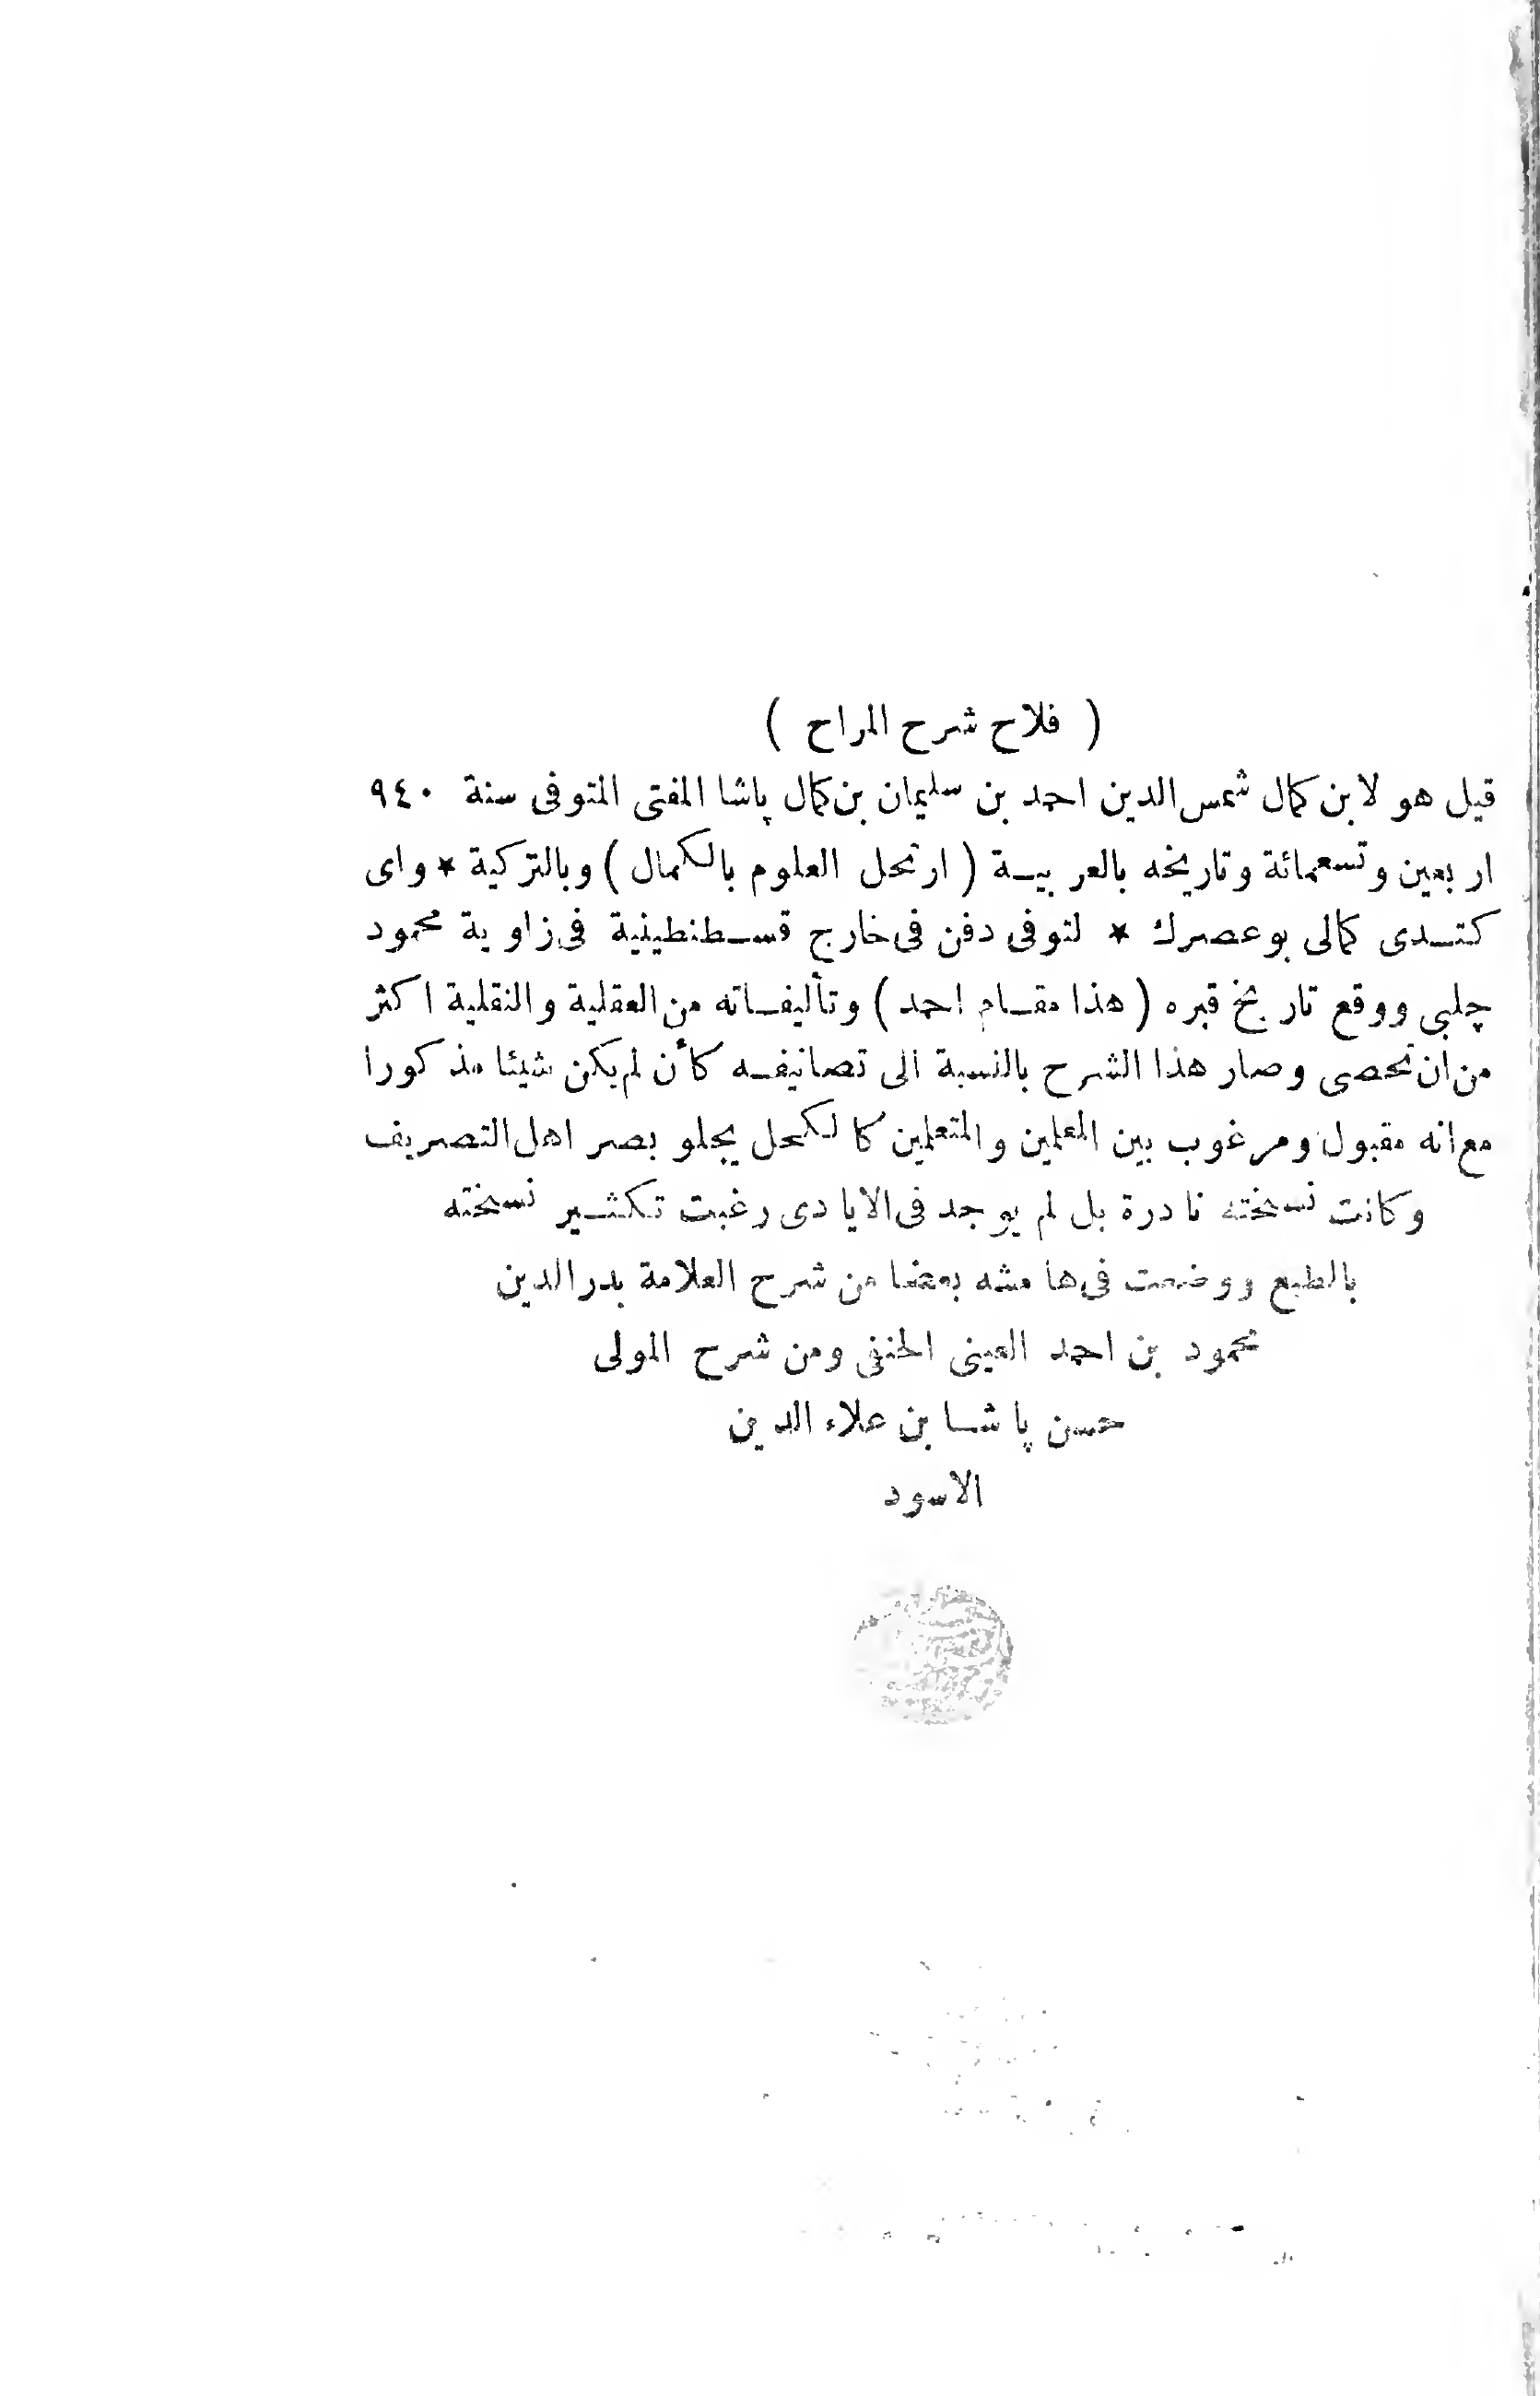 ( فلاح شرح المراح )
قيل هو لابن كمال شمس الدين احمد بن سليمان بن كمال پاشا المفتى المتوفى سنة ٩٤٠
اربعين وتسعمائة وتاريخه بالعربيــة ( ارتحل العلوم بالكمال ) وبالتركية ★ واى
كتــدى كمالى بوعصرك ★ لتوفى دفن فى خارج قســطنطينية فى زاوية محمود
چلبى ووقع تاريخ قبره ( هذا مقــام احمد ) وتأليفــاته من العقلية والنقلية اكثر
من ان تحصى وصار هذا الشرح بالنسبة الى تصانيفــه كأن لم يكن شيئا مذكورا
مع انه مقبول ومرغوب بين المعلمين والمتعلمين كالكحل يجلو بصر اهل التصريف
وكانت نسخته نادرة بل لم يوجد فى الايادى رغبت تكثــير نسخته
بالطبع ووضعت فى هامشه بعضا من شرح العلامة بدر الدين
محمود بن احمد العينى الحنفى ومن شرح المولى
حسن پاشــا بن علاء الدين
الاسود